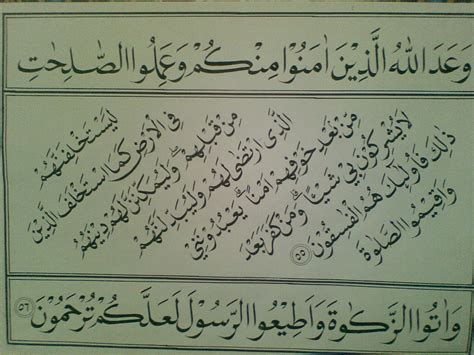 وَعَدَ اللّٰهُ الَّذِيْنَ اٰمَنُوْا مِنْكُمْ وَعَمِلُوا الصّٰلِحٰتِ
لَيَسْتَخْلِفَنَّهُمْ
فِي الْاَرْضِ كَمَا اسْتَخْلَفَ الَّذِيْنَ
مِنْ قَبْلِهِمْ وَلَيُمَكِّنَنَّ لَهُمْ دِيْنَهُمُ
الَّذِى ارْتَضٰى لَهُمْ وَلَيُبَدِّلَنَّهُمْ
مِّنْ بَعْدِ خَوْفِهِمْ اَمْنًا يَعْبُدُوْنَنِيْ
لَا يُشْرِكُوْنَ بِيْ شَيْـًٔا وَمَنْ كَفَرَ بَعْدَ
ذٰلِكَ فَاُولٰٓئِكَ هُمُ الْفٰسِقُوْنَ ٥٥
وَاَقِيْمُوا الصَّلٰوةَ
وَاٰتُوا الزَّكٰوةَ وَاَطِيْعُوا الرَّسُوْلَ لَعَلَّكُمْ تُرْحَمُوْنَ ٥٦